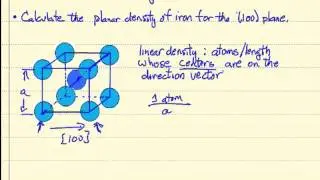 • Calculate the planar density of iron for the (100) plane.
linear density : atoms/length
whose centers are on the
direction vector
a
1 atom
a
[100]